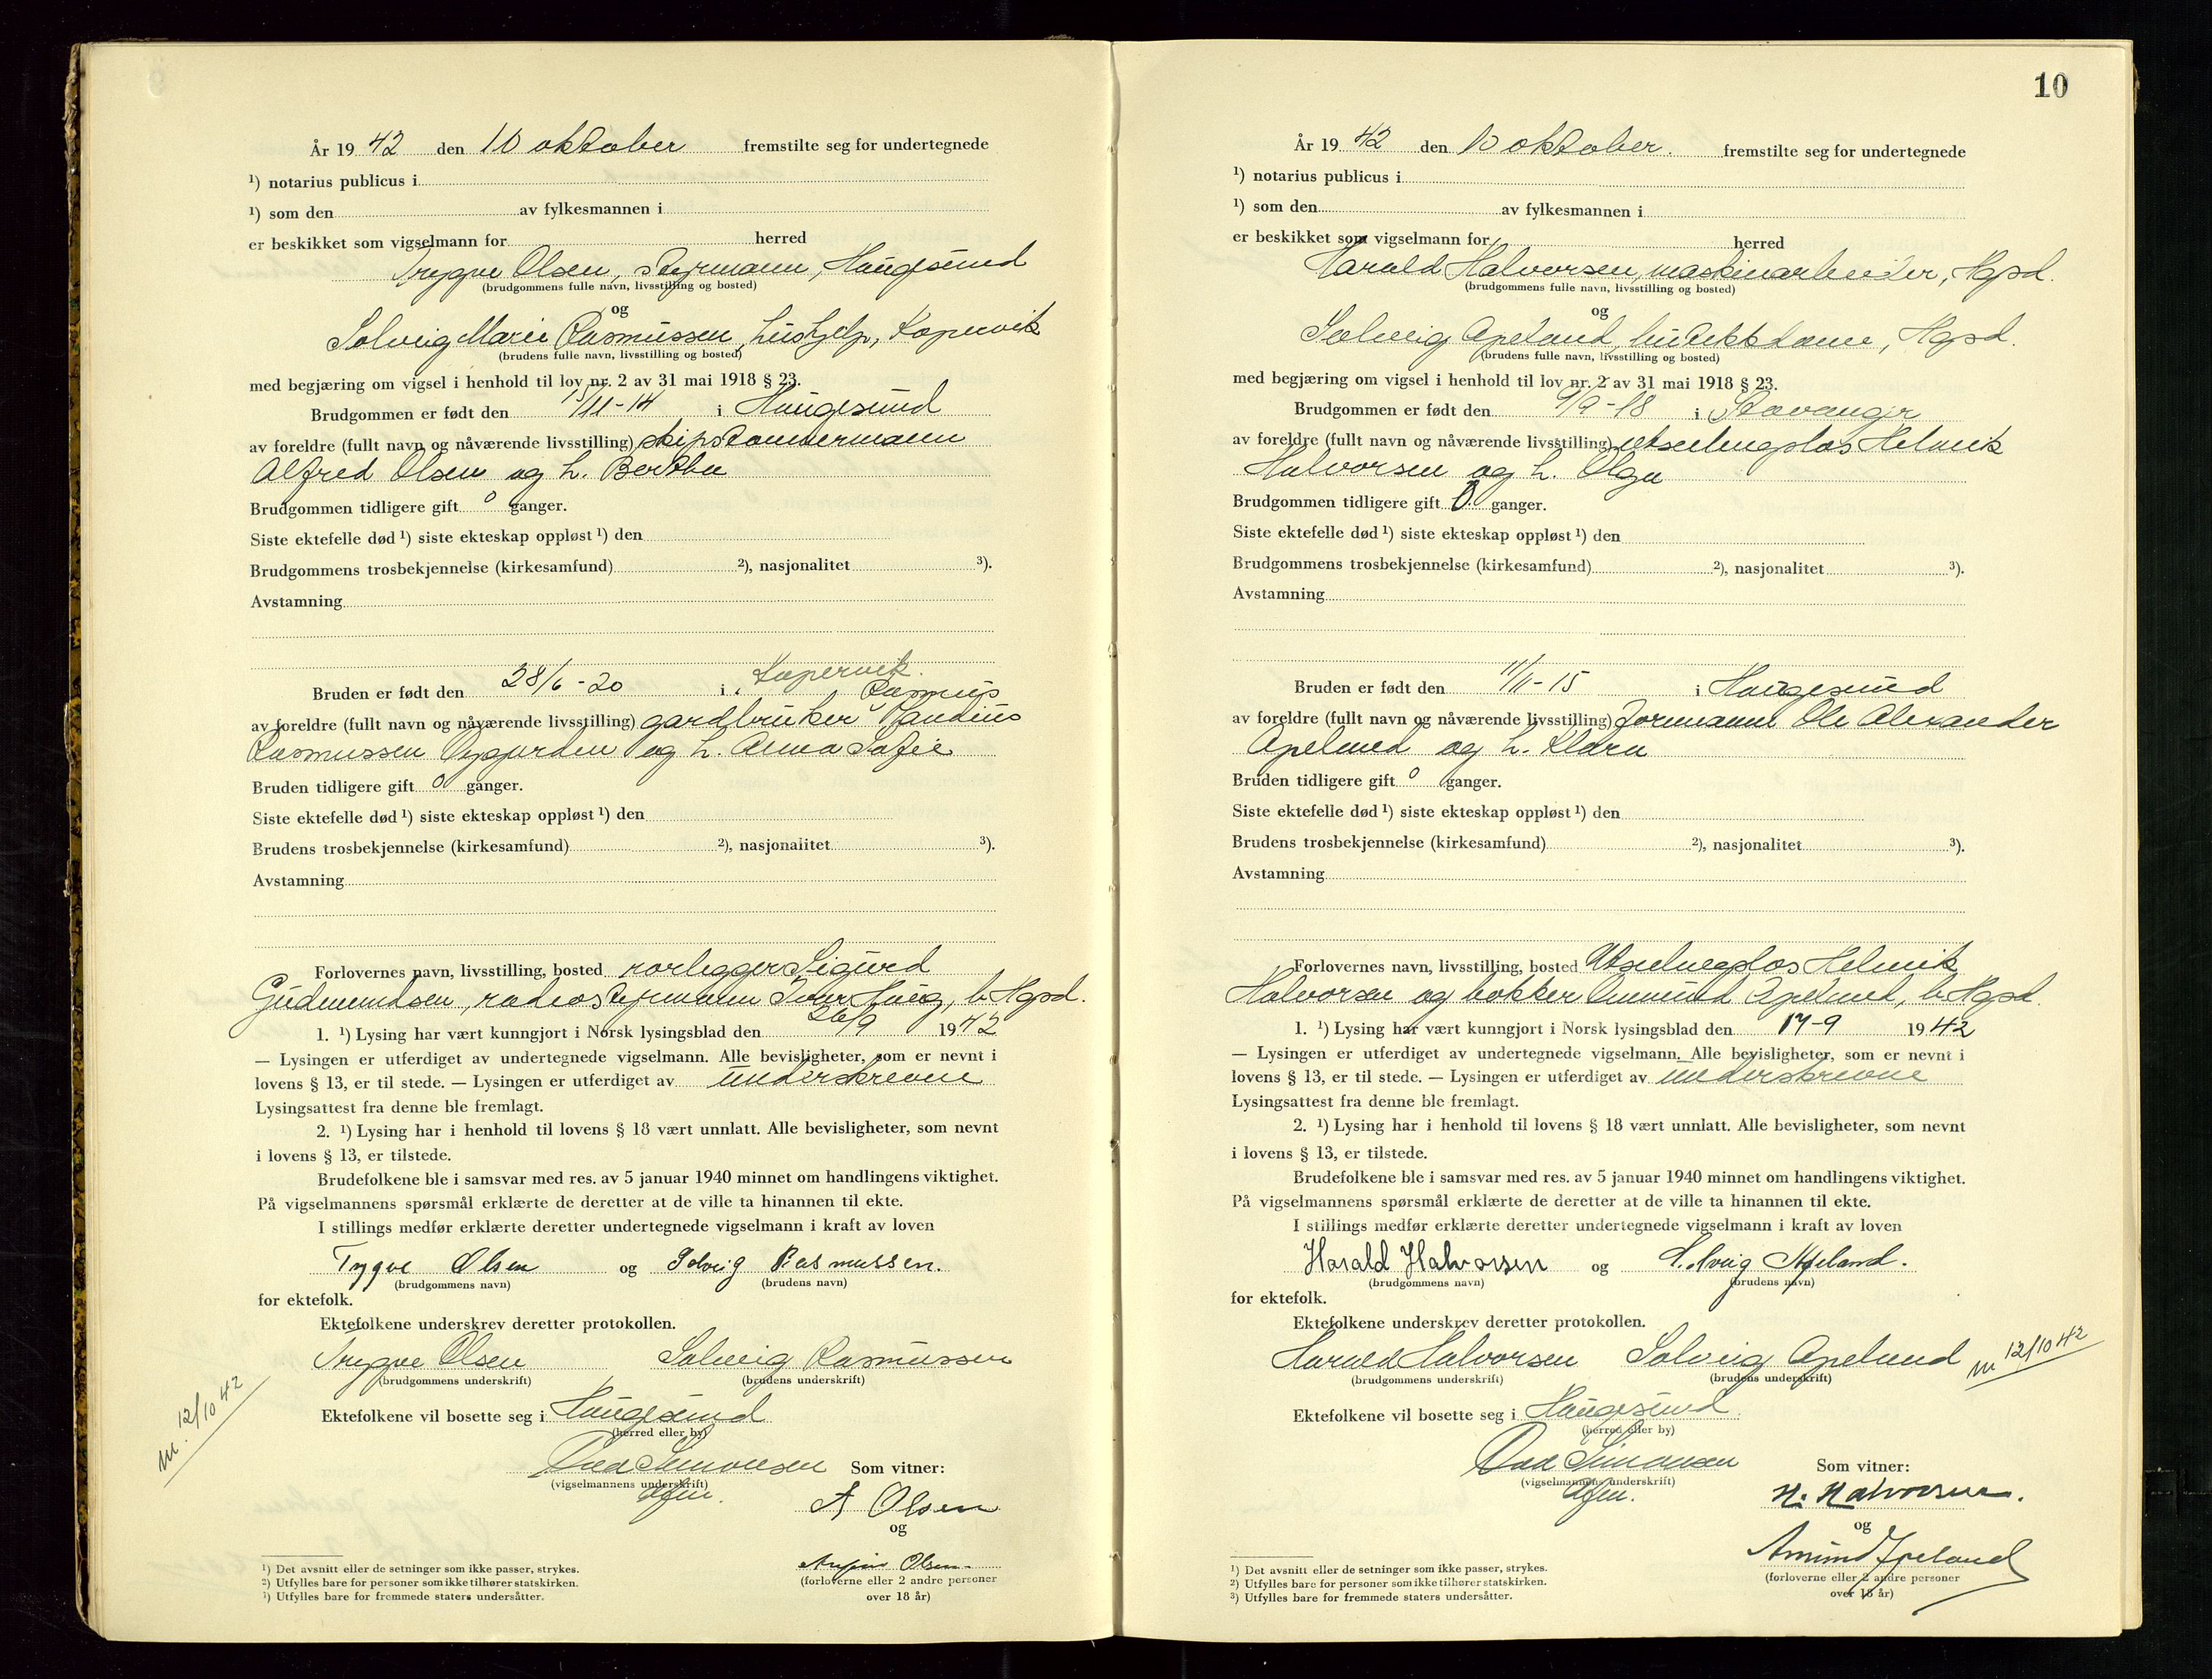 År 19 42 den 10 oktober fremstilte seg for undertegnede
¹) notarius publicus i
¹) som den av fylkesmannen i
er beskikket som vigselmann for herred
Trygve Olsen, styrmann, Haugesund
(brudgommens fulle navn, livsstilling og bosted)
og
Solveig Marie Rasmussen, hushjelp, Kopervik
(brudens fulle navn, livsstilling og bosted)
med begjæring om vigsel i henhold til lov nr. 2 av 31 mai 1918 § 23.
Brudgommen er født den /11-14 i Haugesund
av foreldre (fullt navn og nåværende livsstilling) skipstømmermann
Alfred Olsen og h. Berthe
Brudgommen tidligere gift 0 ganger.
Siste ektefelle død ¹) siste ekteskap oppløst ¹) den
Brudgommens trosbekjennelse (kirkesamfund) ²), nasjonalitet ³).
Avstamning
Bruden er født den 28/6-20 i Kopervik.
Rasmus
av foreldre (fullt navn og nåværende livsstilling) gardbruker Randius
Rasmussen og h. Anna Sofie
Bruden tidligere gift 0 ganger.
Siste ektefelle død ¹) siste ekteskap oppløst ¹) den
Brudens trosbekjennelse (kirkesamfund) ²), nasjonalitet ³).
Avstamning
Forlovernes navn, livsstilling, bosted rørlegger Sigurd
Gudmundsen, radiostyrmann Ivar Haug, b. Hgsd.
1. ¹) Lysing har vært kunngjort i Norsk lysingsblad den 26/9 1942
— Lysingen er utferdiget av undertegnede vigselmann. Alle bevisligheter, som er nevnt i
lovens § 13, er til stede. — Lysingen er utferdiget av underskrevne
Lysingsattest fra denne ble fremlagt.
2. ¹) Lysing har i henhold til lovens § 18 vært unnlatt. Alle bevisligheter, som nevnt
i lovens § 13, er tilstede.
Brudefolkene ble i samsvar med res. av 5 januar 1940 minnet om handlingens viktighet.
På vigselmannens spørsmål erklærte de deretter at de ville ta hinannen til ekte.
I stillings medfør erklærte deretter undertegnede vigselmann i kraft av loven
Trygve Olsen og Solveig Rasmussen.
(brudgommens navn) (brudens navn)
for ektefolk.
Ektefolkene underskrev deretter protokollen.
Trygve Olsen Solveig Rasmussen
(brudgommens underskrift) (brudens underskrift)
m. 12/10 42
Ektefolkene vil bosette seg i Haugesund
(herred eller by)
Simonsen Som vitner:
(vigselmannens underskrift)
A Olsen
og
Olsen
(forloverne eller 2 andre personer
over 18 år)
¹) Det avsnitt eller de setninger som ikke passer, strykes.
²) Utfylles bare for personer som ikke tilhører statskirken.
³) Utfylles bare for fremmede staters undersåtter.
10
År 19 42 den 10 oktober. fremstilte seg for undertegnede
¹) notarius publicus i
¹) som den av fylkesmannen i
er beskikket som vigselmann for herred
Harald Halvorsen, maskinarbeider, Hgsd.
(brudgommens fulle navn, livsstilling og bosted)
og
Solveig Apeland, butikkdame, Hgsd.
(brudens fulle navn, livsstilling og bosted)
med begjæring om vigsel i henhold til lov nr. 2 av 31 mai 1918 § 23.
Brudgommen er født den 9/9-18 i Stavanger
av foreldre (fullt navn og nåværende livsstilling) utseilingslos Helmik
Halvorsen og h. Olga
Brudgommen tidligere gift 0 ganger.
Siste ektefelle død ¹) siste ekteskap oppløst ¹) den
Brudgommens trosbekjennelse (kirkesamfund) ²), nasjonalitet ³).
Avstamning
Bruden er født den 11/11-15 i Haugesund
av foreldre (fullt navn og nåværende livsstilling) formann Ole Alexander
Apeland og h. Klara
Bruden tidligere gift 0 ganger.
Siste ektefelle død ¹) siste ekteskap oppløst ¹) den
Brudens trosbekjennelse (kirkesamfund) ²), nasjonalitet ³).
Avstamning
Forlovernes navn, livsstilling, bosted Utseilingslos Helmik
Halvorsen og bøkker Ammund Apeland, b. Hgsd.
1. ¹) Lysing har vært kunngjort i Norsk lysingsblad den 17-9 1942
— Lysingen er utferdiget av undertegnede vigselmann. Alle bevisligheter, som er nevnt i
lovens § 13, er til stede. — Lysingen er utferdiget av underskrevne
Lysingsattest fra denne ble fremlagt.
2. ¹) Lysing har i henhold til lovens § 18 vært unnlatt. Alle bevisligheter, som nevnt
i lovens § 13, er tilstede.
Brudefolkene ble i samsvar med res. av 5 januar 1940 minnet om handlingens viktighet.
På vigselmannens spørsmål erklærte de deretter at de ville ta hinannen til ekte.
I stillings medfør erklærte deretter undertegnede vigselmann i kraft av loven
Harald Halvorsen og Solveig Apeland.
(brudgommens navn) (brudens navn)
for ektefolk.
Ektefolkene underskrev deretter protokollen.
Harald Halvorsen Solveig Apeland m 12/10 42
(brudgommens underskrift) (brudens underskrift)
Ektefolkene vil bosette seg i Haugesund.
(herred eller by)
Simonsen Som vitner:
(vigselmannens underskrift)
H. Halvorsen.
og
Amund Apeland
(forloverne eller 2 andre personer
over 18 år)
¹) Det avsnitt eller de setninger som ikke passer, strykes.
²) Utfylles bare for personer som ikke tilhører statskirken.
³) Utfylles bare for fremmede staters undersåtter.